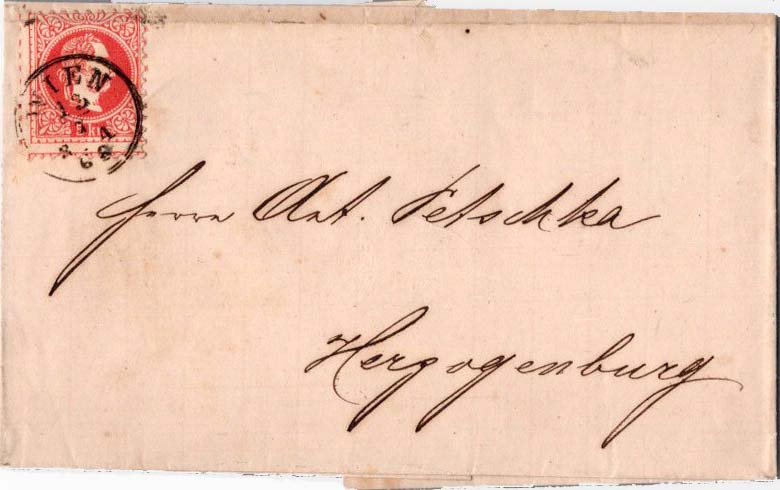 WIEN
5 KR
Herrn Ant. Petschka
Herzogenburg